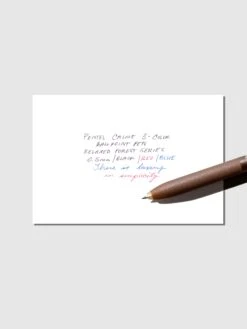 PENTEL CALME 3-COLOR
BALLPOINT PEN
RELAXED FOREST SERIES
0.5mm/BLACK/RED/BLUE
There is beauty
in simplicity